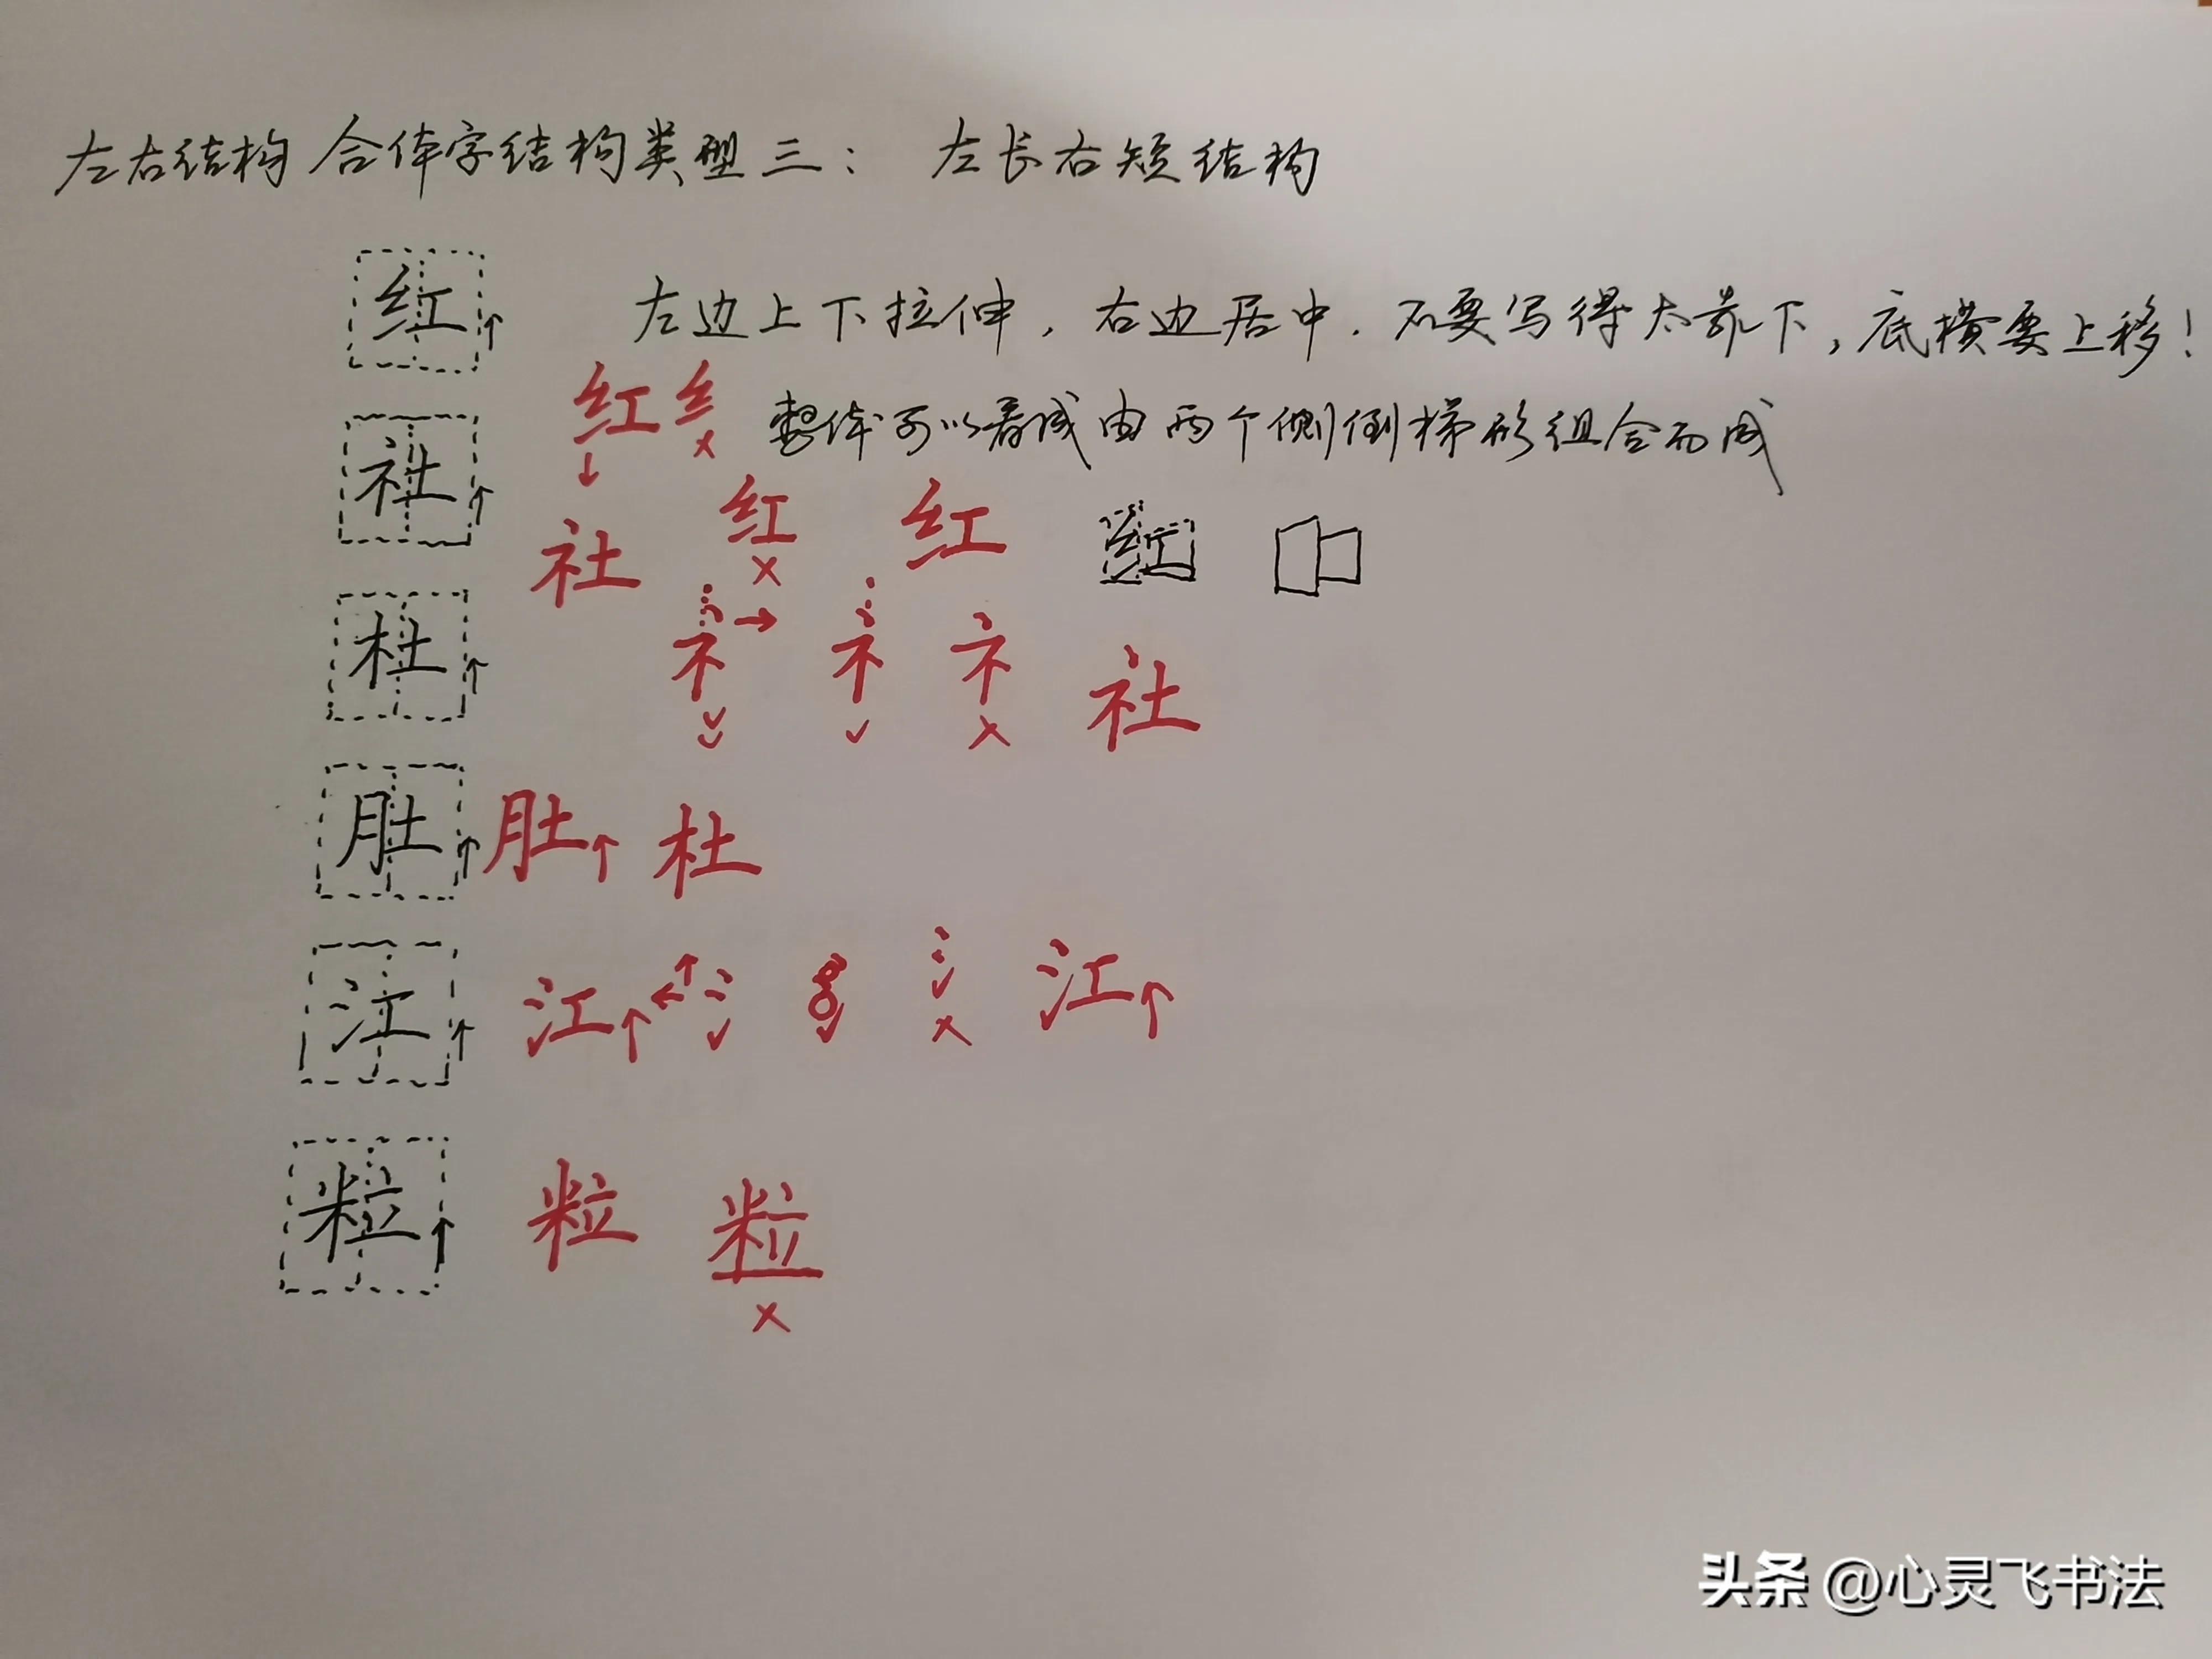 左右结构 合体字结构类型三： 左长右短结构
红 左边上下拉伸，右边居中．不要写得太靠下，底横要上移！
红 纟 × 整体可以看成由两个侧倒梯形组合而成
社 社 红 × 红 红
杜 礻 礻 礻 × 社
肚 肚 杜
江 江 氵 氵 氵 × 江
粒 粒 粒 ×
头条 @心灵飞书法